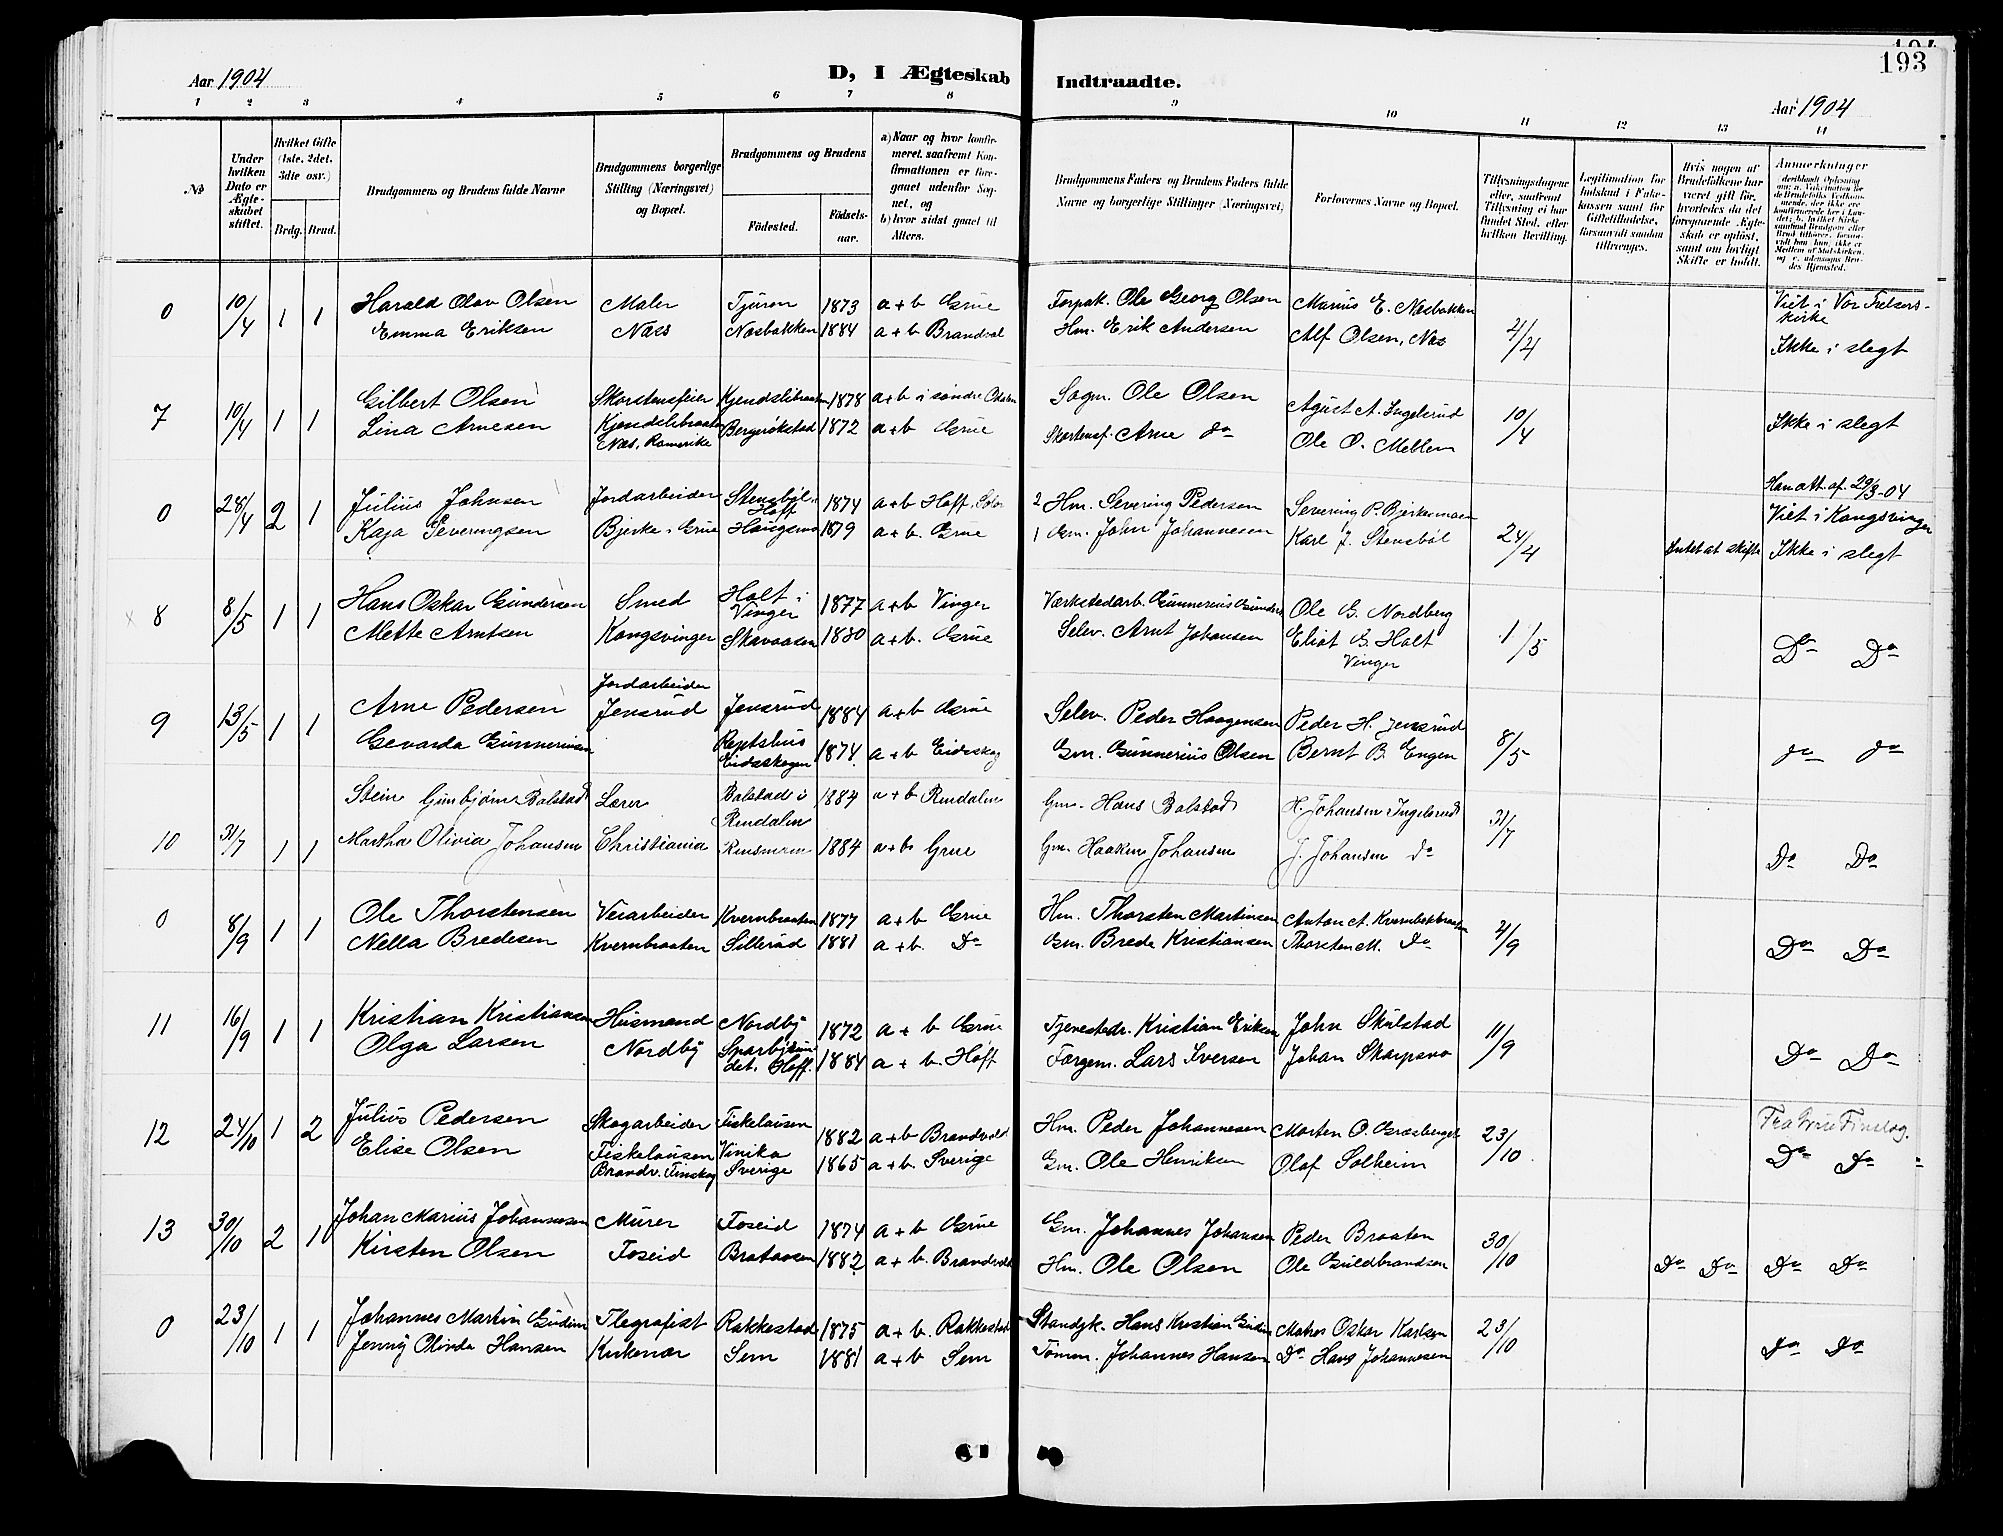 193
Aar 1904
D, I Ægteskab Indtraadte.
Aar 1904
1 2 3 4 5 6 7 8 9 10 11 12 13 14
№
Under hvilken Dato er Ægteskabet stiftet.
Hvilket Gifte (1ste, 2det, 3die osv.)
Brdg. Brud.
Brudgommens og Brudens fulde Navne
Brudgommens borgerlige Stilling (Næringsvei) og Bopæl.
Brudgommens og Brudens
Fødested.
Fødselsaar.
a) Naar og hvor konfirmeret, saafremt Konfirmationen er foregaaet udenfor Sognet, og
b) hvor sidst gaaet til Alters.
Brudgommens Faders og Brudens Faders fulde Navne og borgerlige Stillinger (Næringsvei)
Forlovernes Navne og Bopæl.
Tillysningsdagene eller, saafremt Tillysning ei har fundet Sted, efter hvilken Bevilling.
Legitimation for Indskud i Enkekassen samt for Giftetilladelse, forsaavidt saadan tiltrænges.
Hvis nogen af Brudefolkene har været gift før, hvorledes da det foregaaende Ægteskab er opløst, samt om lovligt Skifte er holdt.
Anmerkninger
0 10/4 1 1 Harald Olav Olsen Maler Tjuren 1873 a+b Grue Forpak. Ole Georg Olsen Marius E. Næsbakken Viet i Vor Frelsers-kirke
Emma Eriksen Næss Næsbakken 1884 a+b Brandval Hm. Erik Andersen Alf Olsen, Næs 4/4 Ikke i slegt
7 10/4 1 1 Gilbert Olsen Skorstensfeier Kjendslibraaten 1878 a+b i søndre Odalen Sagm. Ole Olsen Agust A. Ingelsrud 10/4
Lina Arnesen Kjendslibraaten Bergerökstad 1872 a+b Grue Skorstensf. Arne do Ole O. Mellem Ikke i slegt
Næs, Romerike
Han att. af 29/3-04
0 28/4 2 1 Julius Johnsen Jordarbeider Stensböl i Hoff 1874 a+b Hoff, Solør 2 Hm. Severing Pedersen Severing P. Bjerkesmoen Viet i Kongsvinger
Kaja Severingsen Bjerke i Grue Haugsmo 1879 a+b. Grue 1 Gm. John Johannesen Karl J. Stensböl 24/4 Intet at skifte Ikke i slegt
8 8/5 1 1 Hans Oskar Gundersen Smed Holt i Vinger 1877 a+b Vinger Værkstedarb. Gunnerius Gunders Ole G. Nordberg
Mette Arntsen Kongsvinger Skavaasen 1880 a+b. Grue Selev. Arnt Johansen Eliot G. Holt Vinger 1/5 Do Do
Jordarbeider
9 13/5 1 1 Arne Pedersen Jensrud Jensrud 1884 a+b Grue Selev. Peder Haagensen Peder H. Jensrud
Gevarda Gunneriusen Reptshus Eidsskogen 1874. a+b Eidsskog Gm. Gunnerius Olsen Bernt B. Engen 8/5 do do
Stein Gunbjørn Bolstad Lærer Bolstad i Rendalen 1884 a+b Rendalen Gm. Hans Bolstad H. Johansen Ingelsrud 31/7
10 31/7 1 1 Martha Olivia Johansen Christiania 1884 a+b Grue Gm. Haaken Johansen J. Johansen do Do Do
0 8/9 1 1 Ole Thorstensen Veiarbeider Kvernbraaten 1877 a+b Grue Hm. Thorsten Martinsen Anton A. Kvernbakbraaten 4/9
Nella Bredesen Kvernbraaten Sillerud 1881 a+b. Do Gm. Brede Kristiansen Thorsten M. Do Do Do
11 16/9 1 1 Kristian Kristiansen Husmand Nordby 1872 a+b Grue Tjenestedr. Kristian Eriksen John Skulstad 11/9
Olga Larsen Nordby 1884 a+b. Hoff Færgem. Lars Iversen Johan Skarpsno Do Do
12 24/10 1 2 Julius Pedersen Skogarbeider Fiskelausen 1882 a+b Brandvold Hm. Peder Johannesen Morten O. Græsberget 23/10 Fra Grue Finskog.
Elise Olsen Fiskelausen Brandv. Finskog Vinika Sverige 1865 a+b. Sverige Gm. Ole Henriksen Olaf Solheim Do Do
13 30/10 2 1 Johan Marius Johannesen Murer Foseid 1874 a+b Grue Gm. Johannes Johansen Peder Braaten 30/10
Kirsten Olsen Foseid Brataasen 1882 a+b. Brandvold Hm. Ole Olsen Ole Guldbrandsen Do Do Do Do
0 23/10 1 1 Johannes Martin Gudim Tlegrafist Rakkestad 1875 a+b. Rakkestad Standgk. Hans Kristian Gudim Matros Oskar Karlsen 23/10
Jenny Olinde Hansen Kirkenær Sem 1881 a+b Sem Tömm. Johannes Hansen Do Hans Johannesen do Do